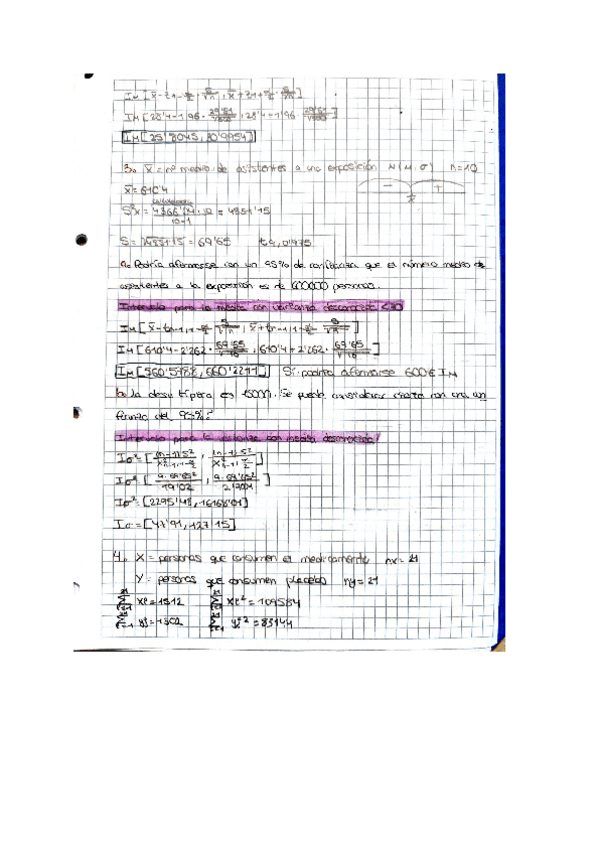 Iμ [x̄ - z1-α/2 · σ/√n , x̄ + z1-α/2 · σ/√n]
Iμ [28'4 - 1'96 · , 28'4 + 1'96 · ]
Iμ [25'8045, 30'9954]
3. X̄ = nº medio de asistentes a una exposición N(μ, σ) n=10
x̄ = 610'4
S²x = · 10 / 10-1 = 4851'15
S = √4851'15 = 69'65 t9, 0'975
a. Podría afirmarse con un 95% de confianza que el número medio de
asistentes a la exposición es de personas.
Intervalo para la media con varianza desconocida <30
Iμ [x̄ - tn-1, 1-α/2 · S/√n , x̄ + tn-1, 1-α/2 · S/√n]
Iμ [610'4 - 2'262 · 69'65/√10 , 610'4 + 2'262 · 69'65/√10]
Iμ [560'5788, 660'2211] Sí podría afirmarse 600 ∈ Iμ
b. La desv típica es Se puede considerar cierta con una con
fianza del 95%?
Intervalo para la varianza con media desconocida
Iσ² = [(n-1)S²/X²n-1, 1-α/2 , (n-1)S²/X²n-1, α/2]
Iσ² [9·69'65²/19'02 , 9·69'65²/2'7004]
Iσ² = [2295'48, 16168'01]
Iσ = [47'91, 127'15]
4. X = personas que consumen el medicamento nx = 21
Y = personas que consumen placebo ny = 21
Σ xi = 1512 Σ xi² = 109584
Σ yj = 1302 Σ yj² = 83144